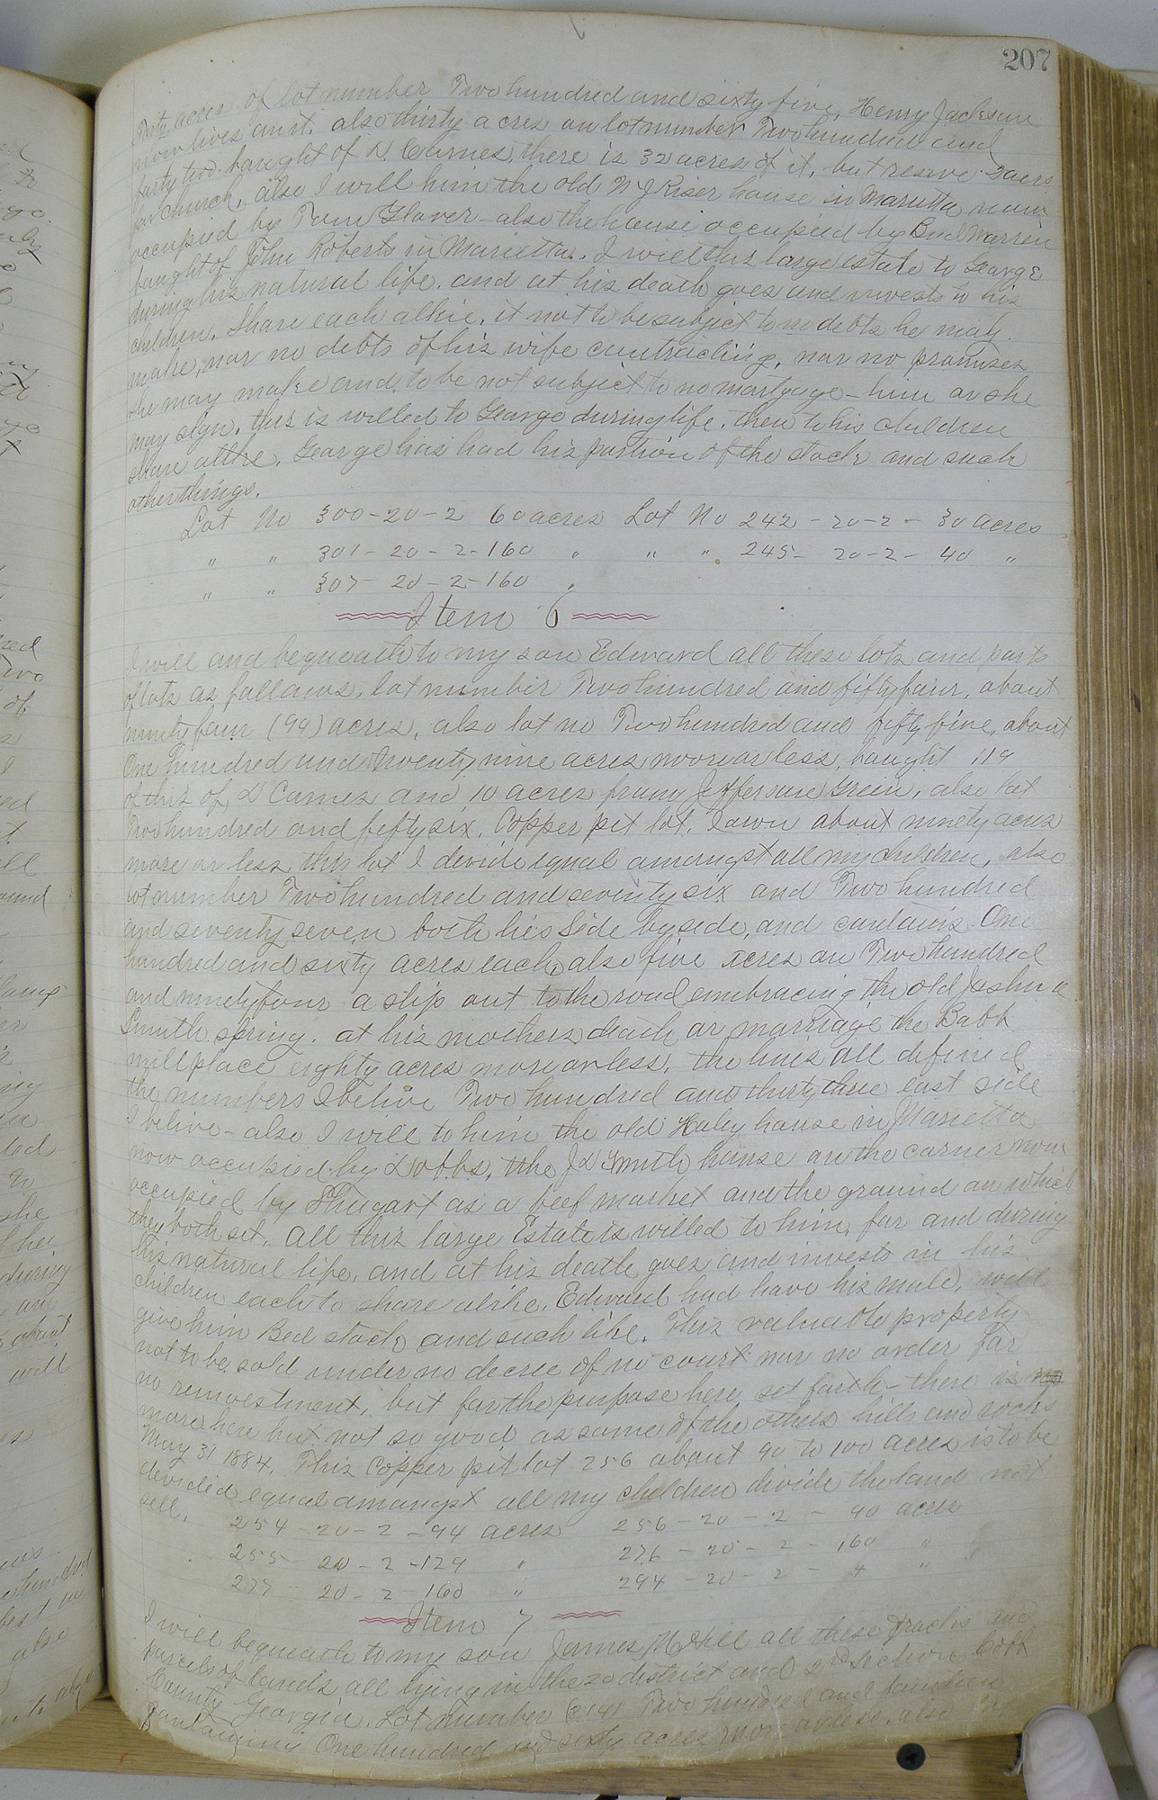 207
forty acres of lot number Two hundred and sixty five, Henry Jackson
now lives on it. also thirty acres on lot number Two hundred and
forty two. baught of D. Carnes, there is 32 acres of it, but reserve 2 acrs
for church. also I will him the old N J Kiser house in Marietta now
occupied by Tom Glover - also the house occupied by Bud Warren
baught of John Roberts in Marietta. I will this large estate to George
during his natural life. and at his death goes and invests in his
children, Share each alkie, it not to be subject to no debts he may
make, nor no debts of his wife contracting, nor no promises
she may make and to be not subject to no mortgage - him or she
may sign. this is willed to George during life. then to his children
share alike. George has had his portion of the stock and such
other things.
Lot No 300-20-2 60 acres Lot No 242 - 20-2 - 30 acres
" " 301 - 20 - 2 - 160 " " " 245 - 20-2 - 40 "
" " 307 - 20 - 2 - 160 "
Item 6
I will and bequeath to my son Edward all these lots and parts
of lots as follows. lot number Two hundred and fifty four, about
ninety four (94) acres, also lot no Two hundred and fifty five, about
One hundred and twenty nine acres more or less, baught 119
of this of D Carnes and 10 acres from Jefferson Green, also lot
Two hundred and fifty six. Copper pit lot. I own about ninety acres
more or less this lot I divide equal amongst all my children, also
lot number Two hundred and seventy six and Two hundred
and seventy seven both lies Side by side, and contains One
hundred and sixty acres each, also five acres on Two hundred
and ninety four a slip out to the road embracing the old Joshua
Smith spring. at his mothers death or marriage the Babb
mill place eighty acres more or less. the lines all defined
the numbers I belive Two hundred and thirty three east side
I belive - also I will to him the old Haley house in Marietta
now occupied by Dobbs, the J D Smith house on the corner now
occupied by Shugart as a beef market and the ground on which
they both set. All this large Estate is willed to him, for and during
his natural life, and at his death goes and invests in his
children each to share alike. Edward had have his mule, will
give him Bed stock and such like. This valuable property
not to be sold under no decree of no court nor no order for
no reinvestment, but for the purpose here set forth - there is
more here but not so good as some of the others hills and rocks
May 31 1884. This Copper pit lot 256 about 90 to 100 acres is to be
divided equal amongst all my children divide the land not
sell.
254 - 20 - 2 - 94 acres 256 - 20 - 2 - 90 acres
255 20 - 2 - 129 " 276 - 20 - 2 - 160 "
277 20 - 2 - 160 " 294 - 20 - 2 - 4 "
Item 7
I will bequeath to my son James M Hill all these tracts and
parcels of lands all lying in the 20 district and 2nd section Cobb
County Georgia. Lot Number (214) Two hundred and fourteen
Containing One hundred and sixty acres more or less, also